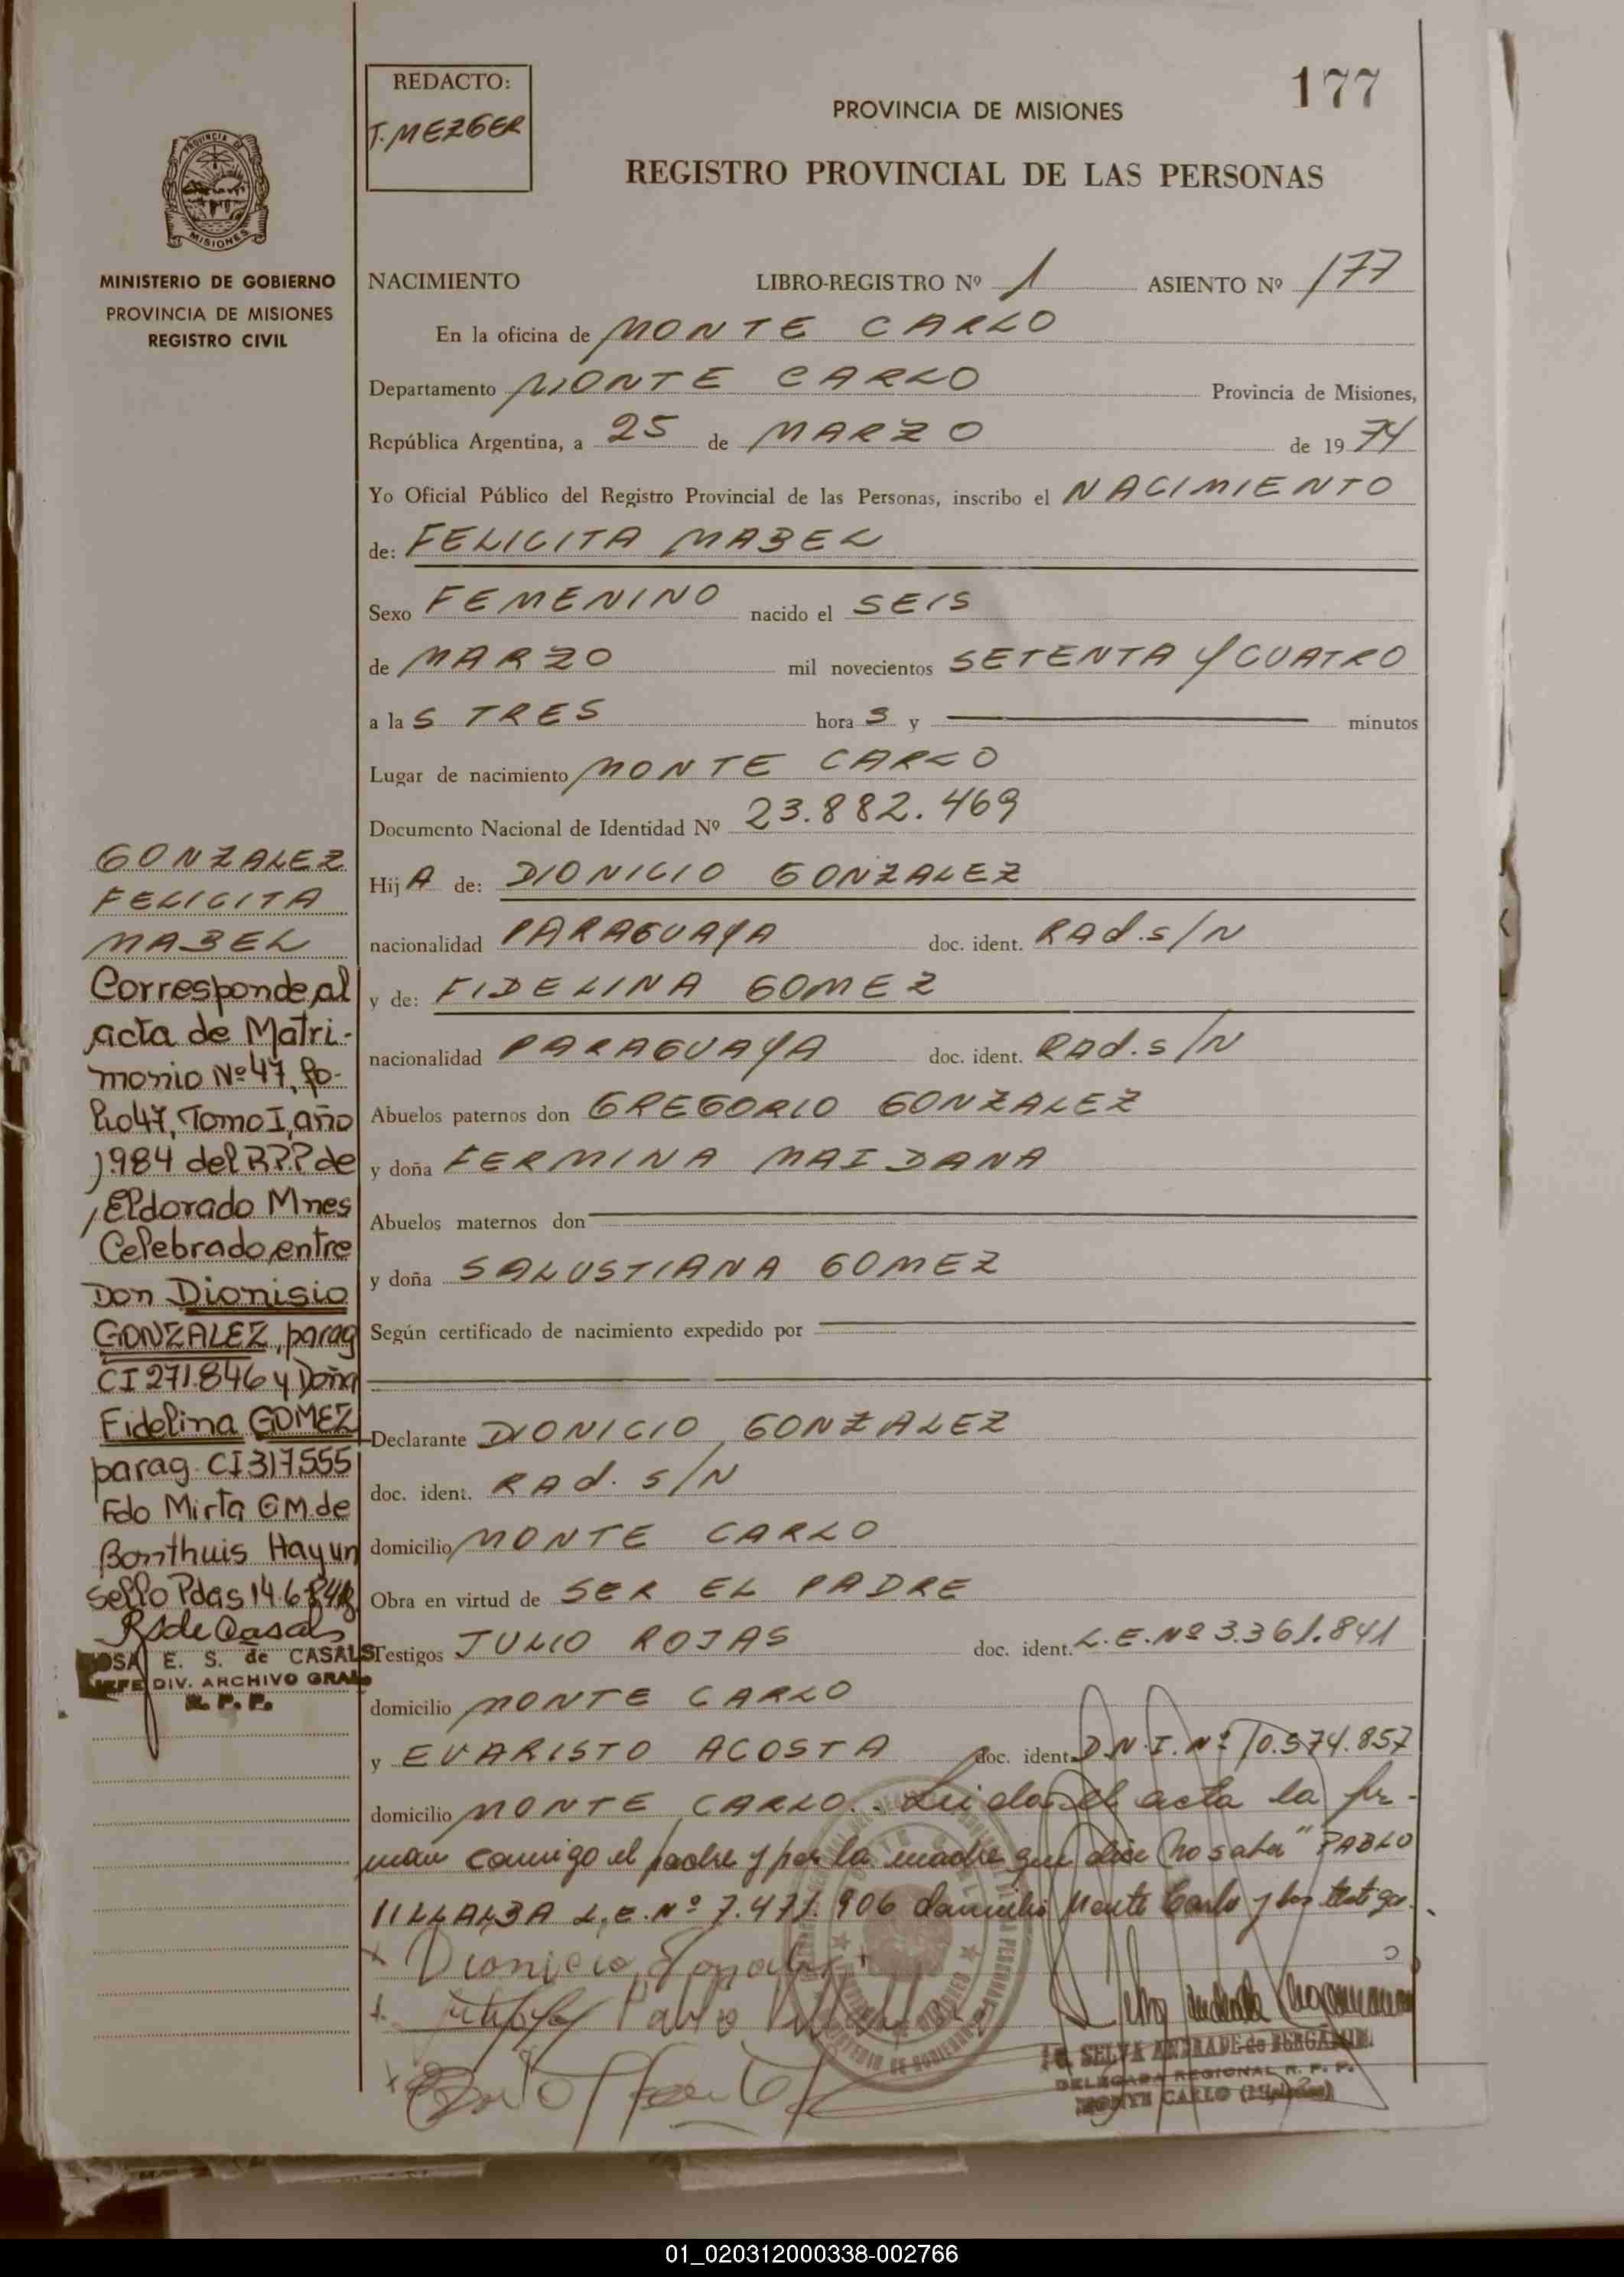 REDACTO:
T. MEZGER
177
PROVINCIA DE MISIONES
REGISTRO PROVINCIAL DE LAS PERSONAS
PROVINCIA DE
MISIONES
MINISTERIO DE GOBIERNO
PROVINCIA DE MISIONES
REGISTRO CIVIL
NACIMIENTO LIBRO-REGISTRO Nº 1 ASIENTO Nº 177
En la oficina de MONTE CARLO
Departamento MONTE CARLO Provincia de Misiones,
República Argentina, a 25 de MARZO de 1974
Yo Oficial Público del Registro Provincial de las Personas, inscribo el NACIMIENTO
de: FELICITA MABEL
Sexo FEMENINO nacido el SEIS
de MARZO mil novecientos SETENTA Y CUATRO
a las TRES horas y minutos
Lugar de nacimiento MONTE CARLO
Documento Nacional de Identidad Nº 23.882.469
HijA de: DIONICIO GONZALEZ
nacionalidad PARAGUAYA doc. ident. RAd. s/N
y de: FIDELINA GOMEZ
nacionalidad PARAGUAYA doc. ident. Rad. s/N
Abuelos paternos don GREGORIO GONZALEZ
y doña FERMINA MAIDANA
Abuelos maternos don
y doña SALUSTIANA GOMEZ
Según certificado de nacimiento expedido por
Declarante DIONICIO GONZALEZ
doc. ident. RAd. s/N
domicilio MONTE CARLO
Obra en virtud de SER EL PADRE
Testigos JULIO ROJAS doc. ident. L.E. Nº 3.361.841
domicilio MONTE CARLO
y EVARISTO ACOSTA doc. ident. D.N.I. Nº 10.574.857
domicilio MONTE CARLO. Leida el acta la fir-
man conmigo el padre y por la madre que dice "no saber" PABLO
VILLALBA L.E. Nº 7.471.906 domicilio Monte Carlo y los testigos.
Dionicio Gonzalez
Pablo Villalba
SELVA ANDRADE de BERGAMIN
DELEGADA REGIONAL R. P. P.
MONTE CARLO (Misiones)
GONZALEZ
FELICITA
MABEL
Corresponde al
acta de Matri-
monio Nº 47, fo-
lio 47, Tomo I, año
1984 del R.P.P de
Eldorado Mnes
Celebrado entre
Don Dionisio
GONZALEZ, parag
CI 271.846 y Doña
Fidelina GOMEZ
parag. CI 317555
Fdo Mirta G M. de
Bonthuis Hay un
sello Pdas 14.6.84
R S de Casals
ROSA E. S. de CASALS
JEFE DIV. ARCHIVO GRAL.
R. P. P.
01_020312000338-002766